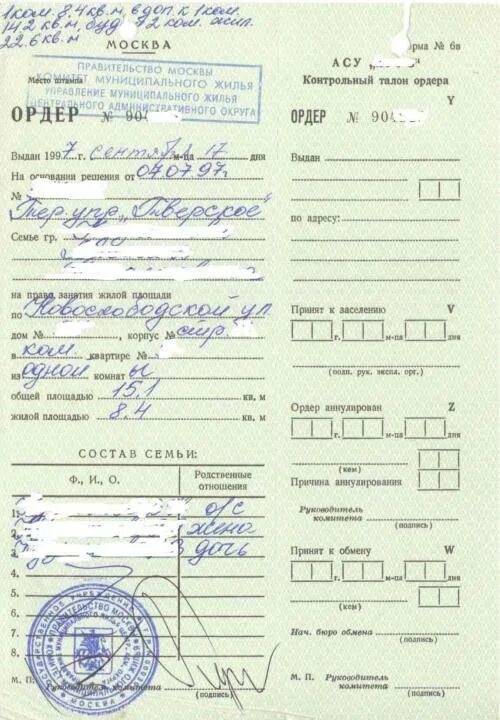 1 ком. 8,4 кв.м, в доп. к 1 ком.
14,2 кв.м, буд 2 ком. жил.
22.6 кв.м
МОСКВА
ПРАВИТЕЛЬСТВО МОСКВЫ
КОМИТЕТ МУНИЦИПАЛЬНОГО ЖИЛЬЯ
УПРАВЛЕНИЕ МУНИЦИПАЛЬНОГО ЖИЛЬЯ
ЦЕНТРАЛЬНОГО АДМИНИСТРАТИВНОГО ОКРУГА
Место штампа
ОРДЕР № 90
Выдан 1997 г. сентября м-ца 17 дня
На основании решения от 04.07.97г.
№
Тер.упр. „Тверское"
Семье гр.
на право занятия жилой площади
по Новослободской ул.
дом № , корпус № стр.
в ком. квартире №
из одной комнат ы
общей площадью 15.1 кв. м
жилой площадью 8.4 кв. м
СОСТАВ СЕМЬИ:
Ф., И., О. Родственные отношения
1. о/с
2. жена
3. дочь
4.
5.
6.
7.
8.
М. П. Руководитель комитета
(подпись)
ПРАВИТЕЛЬСТВО МОСКВЫ
МОСКВА
рма № 6в
АСУ „
Контрольный талон ордера
Y
ОРДЕР № 90
Выдан
по адресу:
Принят к заселению V
г. м-ца дня
(подп. рук. экспл. орг.)
Ордер аннулирован Z
г. м-ца дня
(кем)
Причина аннулирования
Руководитель
комитета
(подпись)
Принят к обмену W
г. м-ца дня
(кем)
Нач. бюро обмена
(подпись)
М. П. Руководитель
комитета
(подпись)